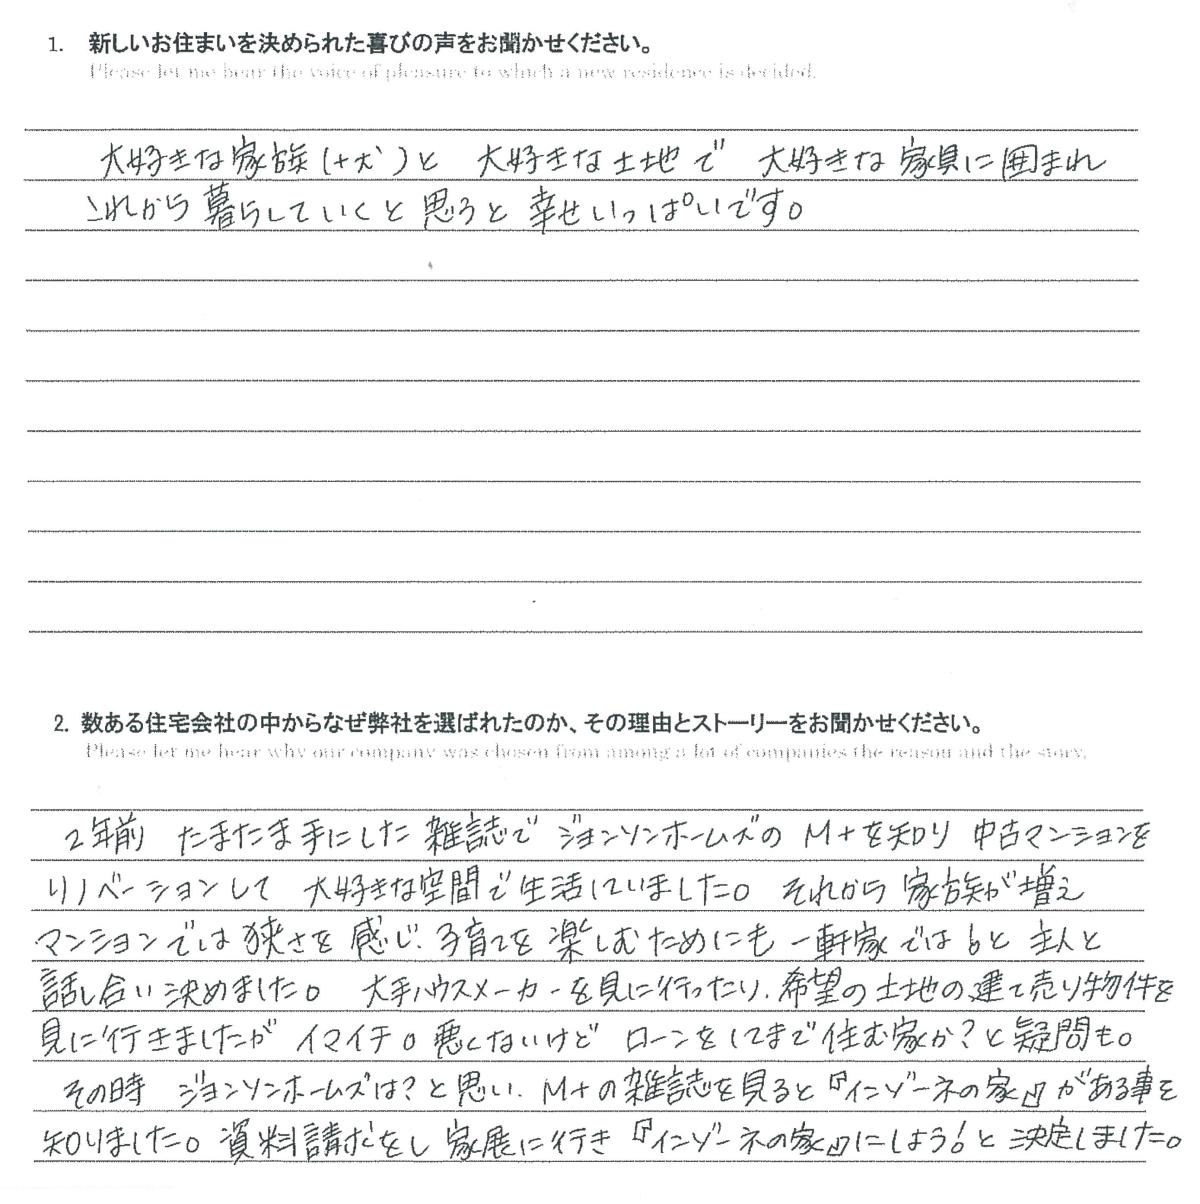 1. 新しいお住まいを決められた喜びの声をお聞かせください。
Please let me hear the voice of pleasure to which a new residence is decided.
大好きな家族(+犬)と 大好きな土地で 大好きな家具に囲まれ
これから暮らしていくと思うと幸せいっぱいです。
2. 数ある住宅会社の中からなぜ弊社を選ばれたのか、その理由とストーリーをお聞かせください。
Please let me hear why our company was chosen from among a lot of companies the reason and the story.
2年前 たまたま手にした雑誌でジョンソンホームズのM+を知り 中古マンションを
リノベーションして 大好きな空間で生活していました。それから家族が増え
マンションでは狭さを感じ、子育てを楽しむためにも一軒家ではと主人と
話し合い決めました。 大手ハウスメーカーを見に行ったり、希望の土地の建て売り物件を
見に行きましたがイマイチ。悪くないけど ローンをしてまで住む家か?と疑問も。
その時 ジョンソンホームズは?と思い、M+の雑誌を見ると『インゾーネの家』がある事を
知りました。資料請求をし 家展に行き『インゾーネの家』にしよう!と決定しました。